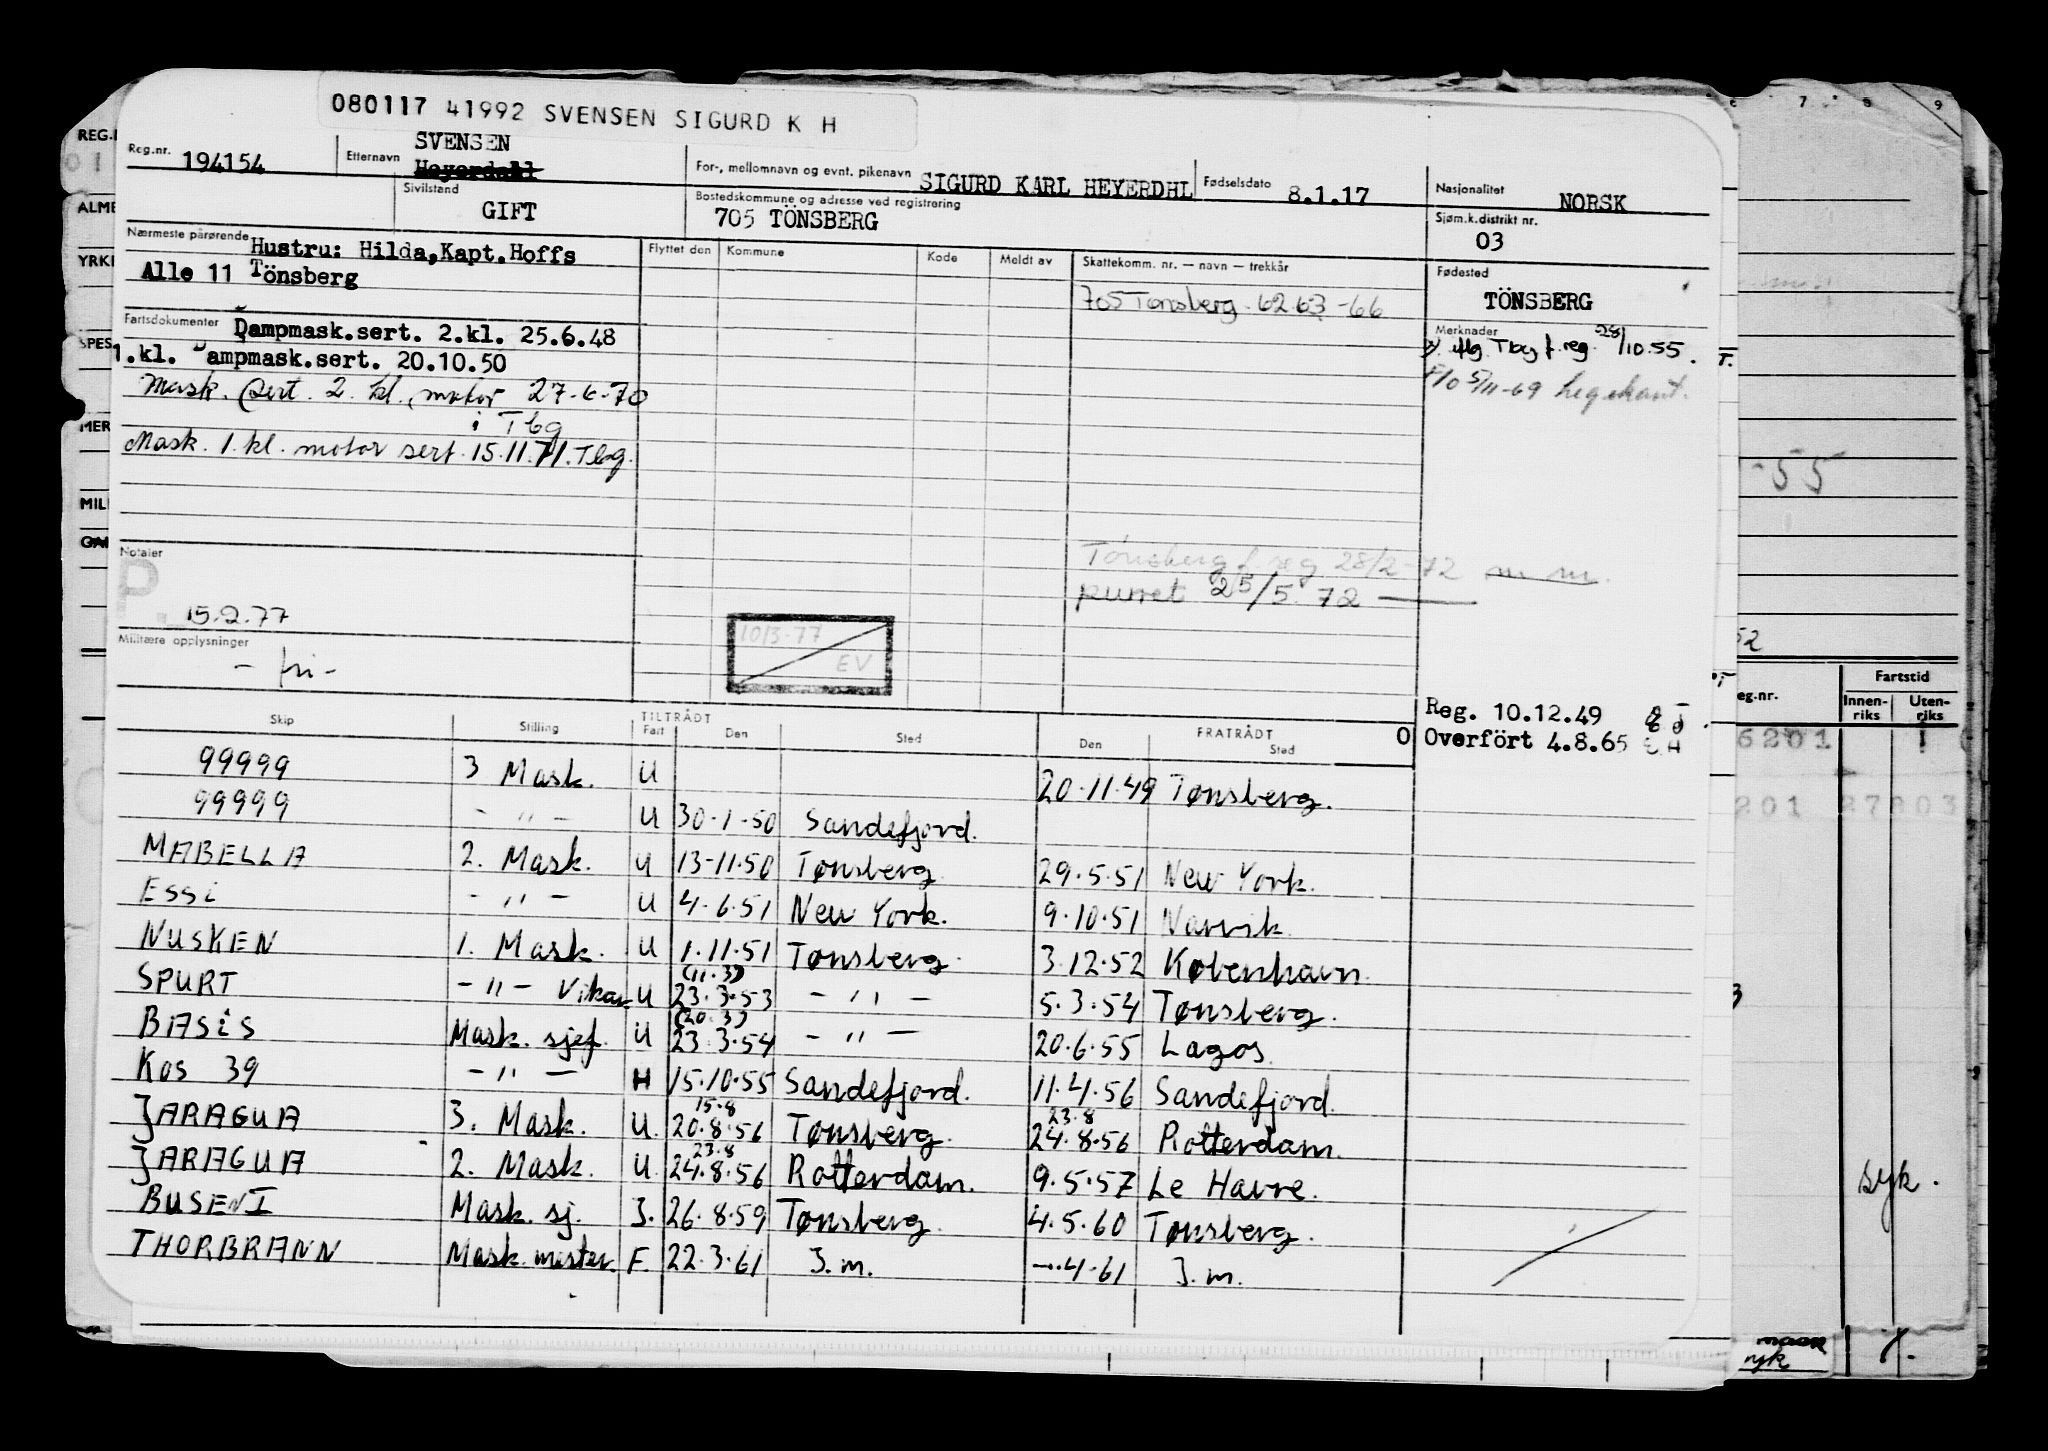 080117 41992 SVENSEN SIGURD K H
Reg.nr. 194154
Etternavn SVENSEN
Heyerdahl
For-, mellomnavn og evnt. pikenavn SIGURD KARL HEYERDHL
Fødselsdato 8.1.17
Nasjonalitet NORSK
Sivilstand GIFT
Bostedskommune og adresse ved registrering
705 TÖNSBERG
Sjøm.k.distrikt nr.
03
Nærmeste pårørende Hustru: Hilda, Kapt. Hoffs
Alle 11 Tönsberg
Flyttet den Kommune Kode Meldt av Skattekomm. nr. — navn — trekkår
705 Tønsberg. 62 63 -66
Fødested
TÖNSBERG
Fartsdokumenter Dampmask.sert. 2.kl. 25.6.48
1.kl. Dampmask.sert. 20.10.50
Mask. sert. 2. kl. motor 27-6-70
i Tbg
Mask. 1. kl. motor sert. 15.11.71. Tbg.
Merknader
utg. Tbg f. reg. 28/10.55.
5/11-69
Notater
15.2.77
Militære opplysninger
- fri -
10/3-77
EV
Tönsberg f. reg 28/2-72
purret 25/5. 72
Reg. 10.12.49
Overfört 4.8.65
Skip Stilling TILTRÅDT Fart Den Sted FRATRÅDT Den Sted 0
99999 3 Mask. U 20.11.49 Tønsberg.
99999 - " - U 30-1-50 Sandefjord.
MABELLA 2. Mask. U 13-11.50 Tønsberg 29.5.51 New York.
ESSI - " - U 4-6.51 New York. 9.10.51 Narvik
NUSKEN 1. Mask. U 1.11.51 Tønsberg 3.12.52 København
SPURT - " - Vikar U (11.3) 23.3.53 - " - 5.3.54 Tønsberg.
BASIS Mask. sjef. U (20.3) 23.3.54 - " - 20.6.55 Lagos.
KOS 39 - " - H 15.10.55 Sandefjord. 11.4.56 Sandefjord.
JARAGUA 3. Mask. U. 15.8 20.8.56 Tønsberg. 23.8 24.8.56 Rotterdam.
JARAGUA 2. Mask. U 23.8 24.8.56 Rotterdam. 9.5.57 Le Havre.
BUSEN I Mask. sj. J. 26.8.59 Tønsberg. 4.5.60 Tønsberg.
THORBRANN Mask. mester. F. 22.3.61 J.m. -.4-61 J.m.
REG.
01
ALME
YRKE
SPES
MER
MILI
7 8 9
-55
52
eg.nr. Fartstid
Innen-riks Uten-riks
6201 1
201 27003
syk.
mask
syk